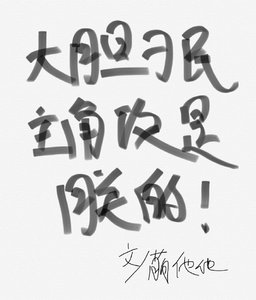 大胆刁民
主角改是
朕的！
文/萌他他